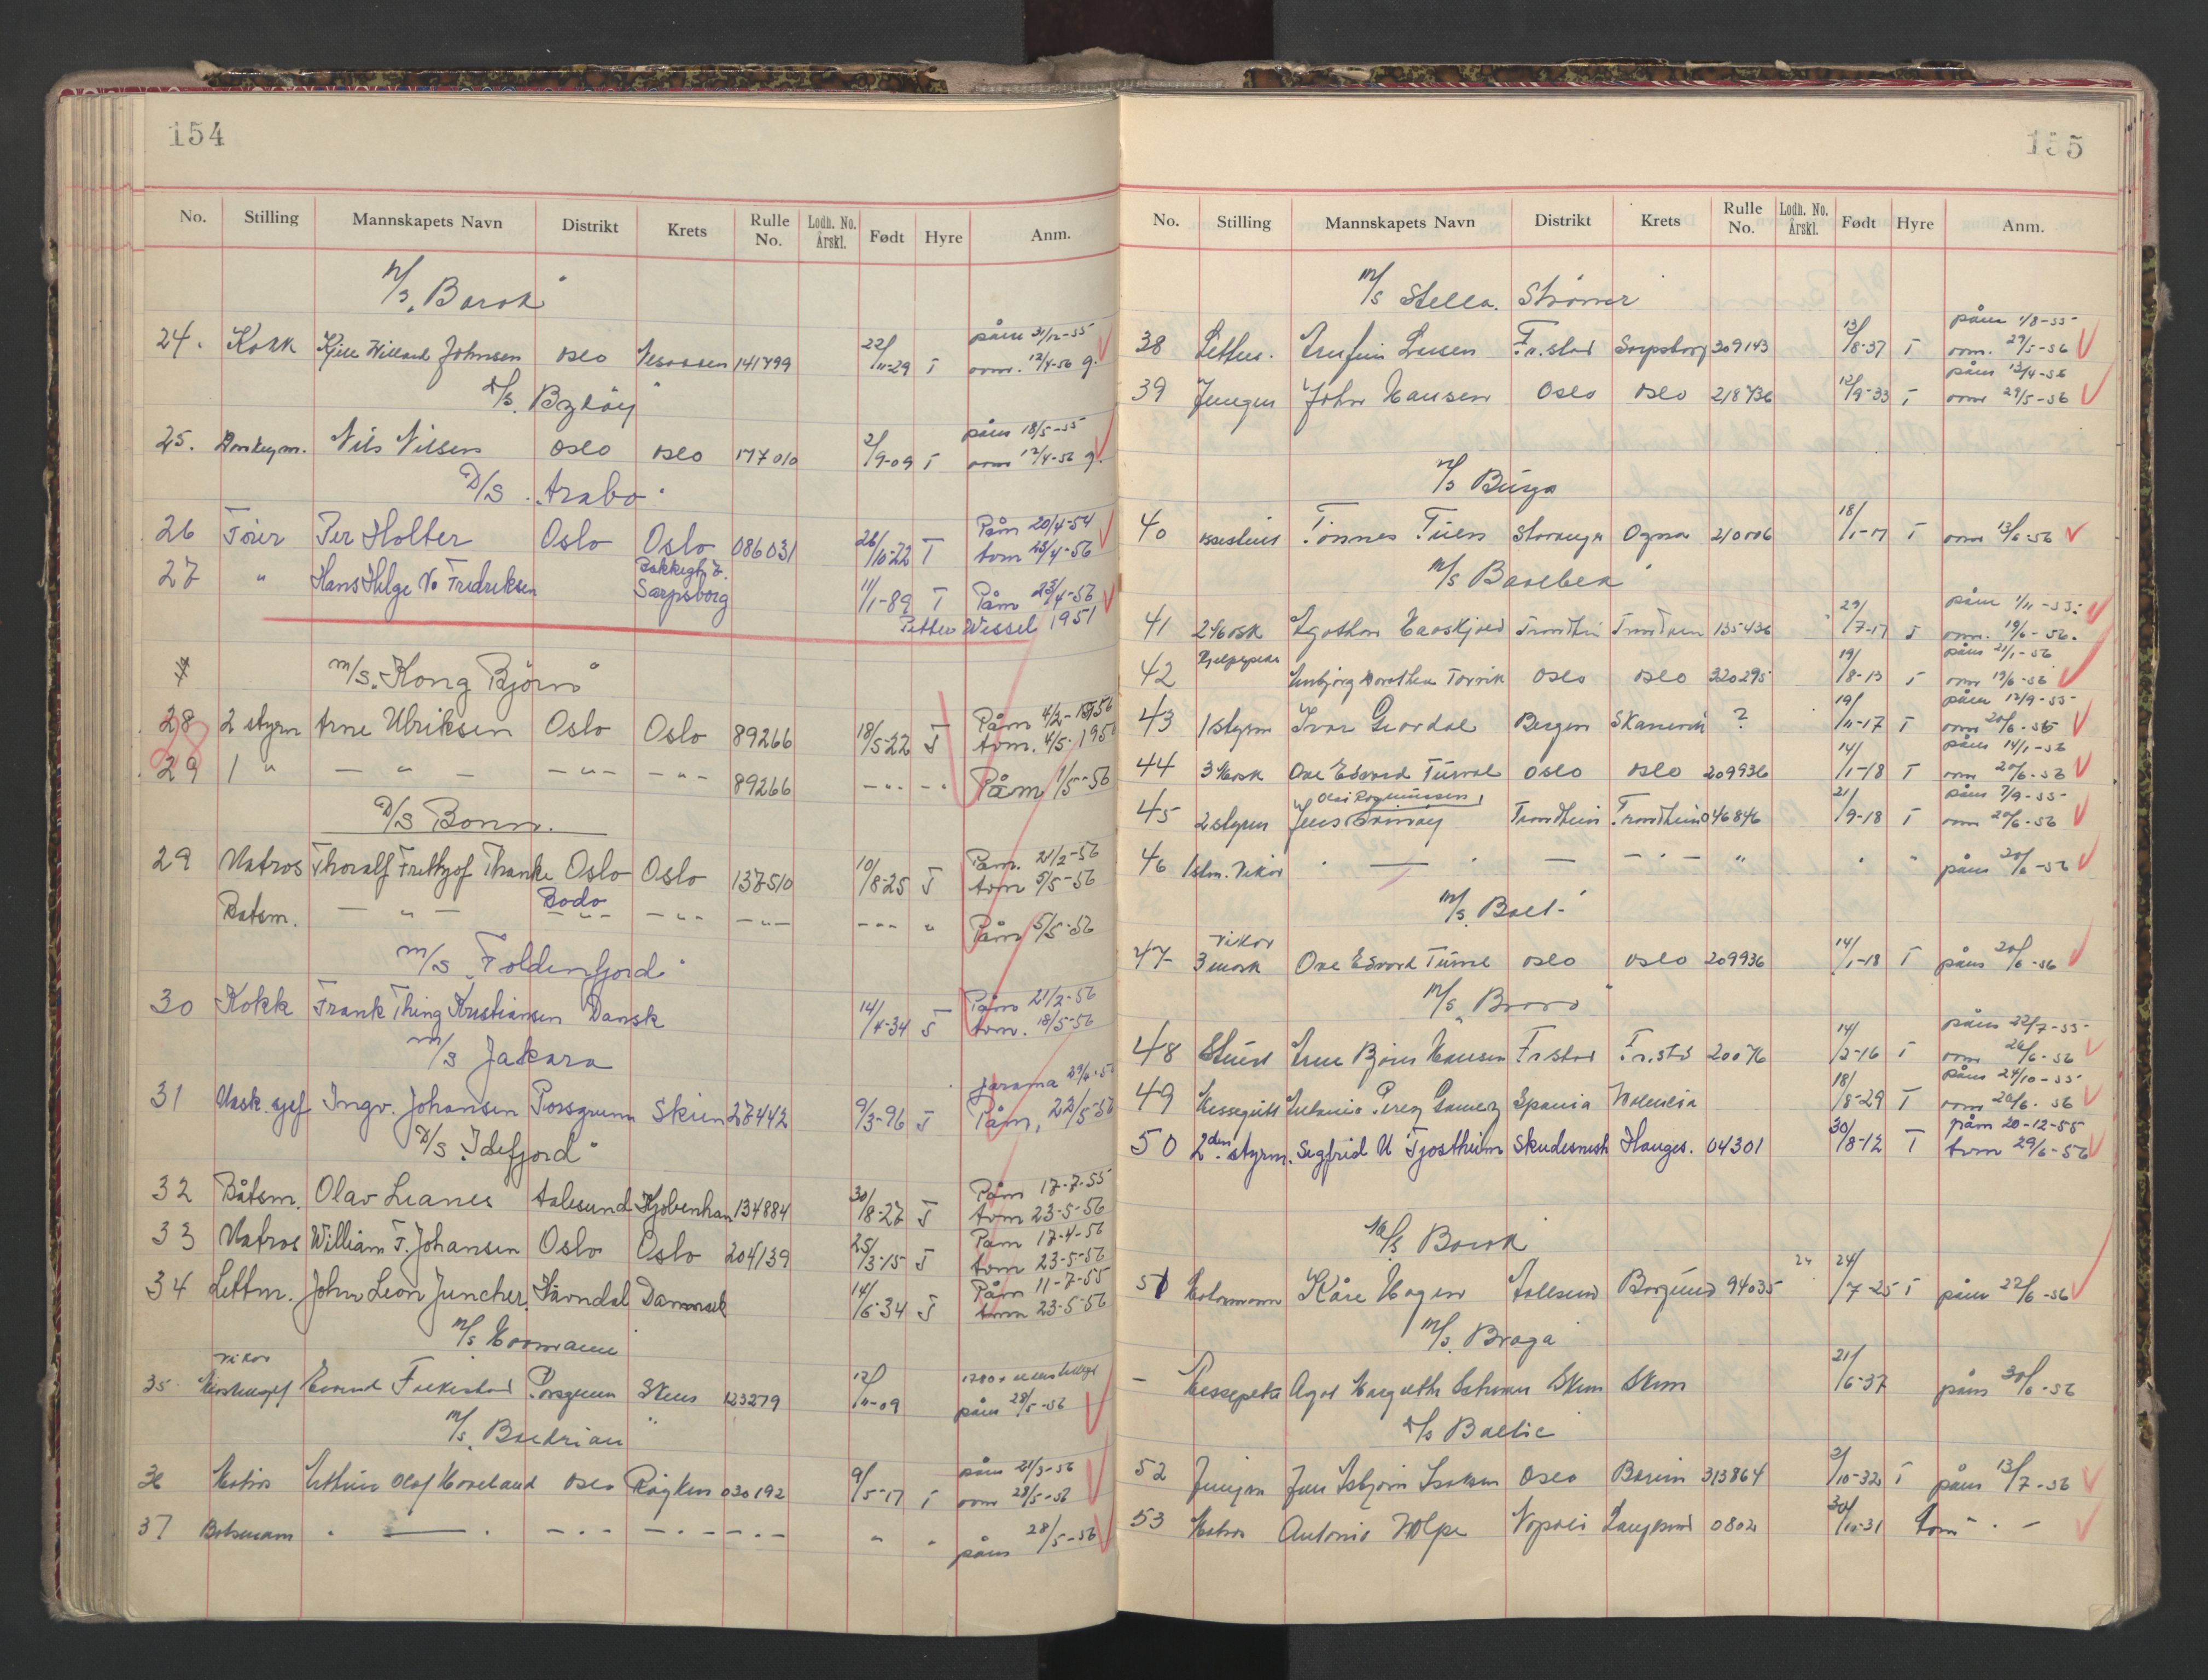 154
No. Stilling Mannskapets Navn Distrikt Krets Rulle No. Lodh. No. Årskl. Født Hyre Anm.
M/S "Barok"
24. Kokk Kjell Willard Johnsen Oslo Nesodden 141799 22/11-29 T påm 31/12-55
avm. 12/4-56 g.
D/S "Byløy"
25. Donkeym. Nils Nilsen Oslo Oslo 177010 2/9-09 T påm 18/5-55
avm 12/4-56 g.
D/S "Arabo"
26 Fører Per Holter Oslo Oslo 086031 26/10-22 T Påm 20/4-54
avm 23/4-56
27 " Hans Helge V. Fredriksen Sarpsborg 11/1-89 T Påm 23/4-56
Petter Wessel 1951
M/S. "Kong Bjørn"
28 2 styrm Arne Ulriksen Oslo Oslo 89266 18/5-22 T Påm 4/2-1956
avm. 4/5-1956
29 1 " — " — — " — — " — 89266 — " — Påm 1/5-56
D/S Bonn.
29 Matros Thoralf Frithjof Thanke Oslo Oslo 137510 10/8-25 T Påm. 21/2-56
avm 5/5-56
Bodø
Båtsm. — " — — " — — " — — " — — " — " Påm 5/5-56
M/S "Foldenfjord"
30 Kokk Frank Thing Kristiansen Dansk 14/4-34 T Påm 21/2-56
avm. 18/5-56
M/S Jakara
31 Mask. sjef Ingv. Johansen Porsgrunn Skien 27442 9/3-96 T Jarama
Påm, 22/5-56
D/S "Idefjord"
32 Båtsm. Olav Leanes Aalesund Kjøbenhavn 134884 30/8-27 T Påm 17-7-55
avm 23-5-56
33 Matros William F. Johansen Oslo Oslo 204139 25/3-15 T Påm 17-4-56
avm 23-5-56
34 Lettm. John Leon Juncher Danmark 14/6-34 T Påm 11-7-55
avm 23-5-56
M/S
vikar
35 Porsgrunn Skien 123279 12/11-09
påm 28/5-56
M/S "Baldrian"
36 Matros Olaf Hoveland Oslo Røyken 030192 9/5-17 T påm 21/3-56
avm 28/5-56
37 Båtsmann " — " — " — — " — — " — " " påm 28/5-56
155
No. Stilling Mannskapets Navn Distrikt Krets Rulle No. Lodh. No. Årskl. Født Hyre Anm.
M/S Stella
38 Lettm. Larsen Fr.stad Sarpsborg 309143 13/8-37 T påm 1/8-55
avm. 29/5-56
39 Jungm John Hansen Oslo Oslo 218736 12/9-33 T påm 12/4-56
avm 29/5-56
M/S
40 Tønnes Stavanger Ogna 210006 18/1-17 T avm 13/6-56
M/S Basilbek
41 2 Mask Trondheim Trondheim 135436 29/7-17 T påm 1/11-55.
avm. 19/6-56.
42 Dorothea Oslo Oslo 320295 19/8-13 T påm 21/1-56
avm 19/6-56
43 1 styrm Ivar Bergen ? 19/11-17 T påm 12/9-55
avm 20/6-56
44 3 Mask Ove Edvard Oslo Oslo 209936 14/1-18 T påm 14/1-56
avm 20/6-56
45 2 styrm Jens Trondheim Trondheim 046846 21/9-18 T påm 7/9-55
avm 20/6-56
46 1 stm. vikar " — " — — " — " " " påm 20/6-56
M/S "Balt"
vikar
47 3 mask Ove Edvard Oslo Oslo 209936 14/1-18 T påm 20/6-56
M/S "Bravo"
48 Stuert Arne Bjørn Hansen Fr.stad Fr.std 20076 14/2-16 T påm 22/7-55
avm 26/6-56
49 Messegutt Antonio Perez Gomez Spania Valencia 18/8-29 T påm 24/10-55
avm 26/6-56
50 2den styrm. Segfrid U Tjøstheim Skudesnesh Hauges. 04301 30/8-12 T påm 20-12-55
avm 29/6-56
M/S Barok
51 Motormann Kåre Hagen Aalesund Borgund 94035 24 24/7-25 T påm 22/6-56
M/S "Braga"
— Messepike Skien Skien 21/6-37 påm 30/6-56
D/S Baltic
52 Jungm Jan Asbjørn Isaksen Oslo Bærum 313864 2/10-32 T påm 13/7-56
53 Matros Antonio Volpe Napoli Langesund 0802 30/10-31 " —